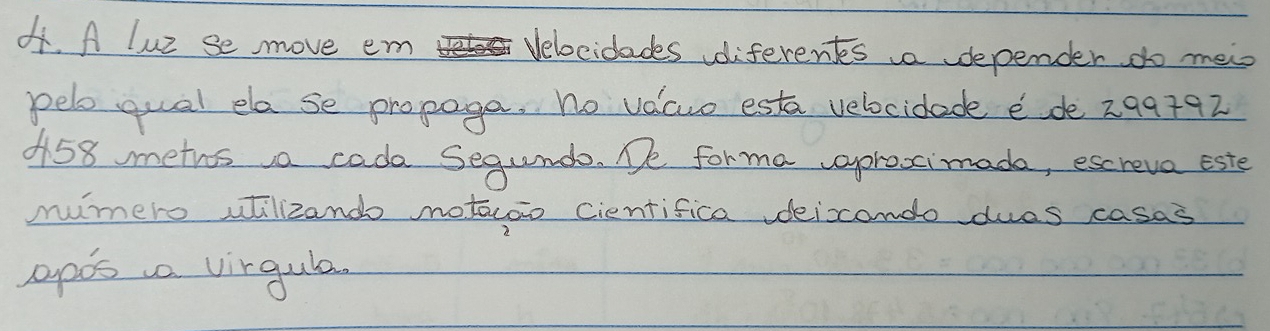 4. A luz se move em Velocidades diferentes a depender do meio
pelo qual ela se propaga. no vácuo esta velocidade é de 299792
458 metros a cada Segundo. De forma aproximada, escreva Este
número utilizando notação cientifica deixando duas casas
após a virgula.